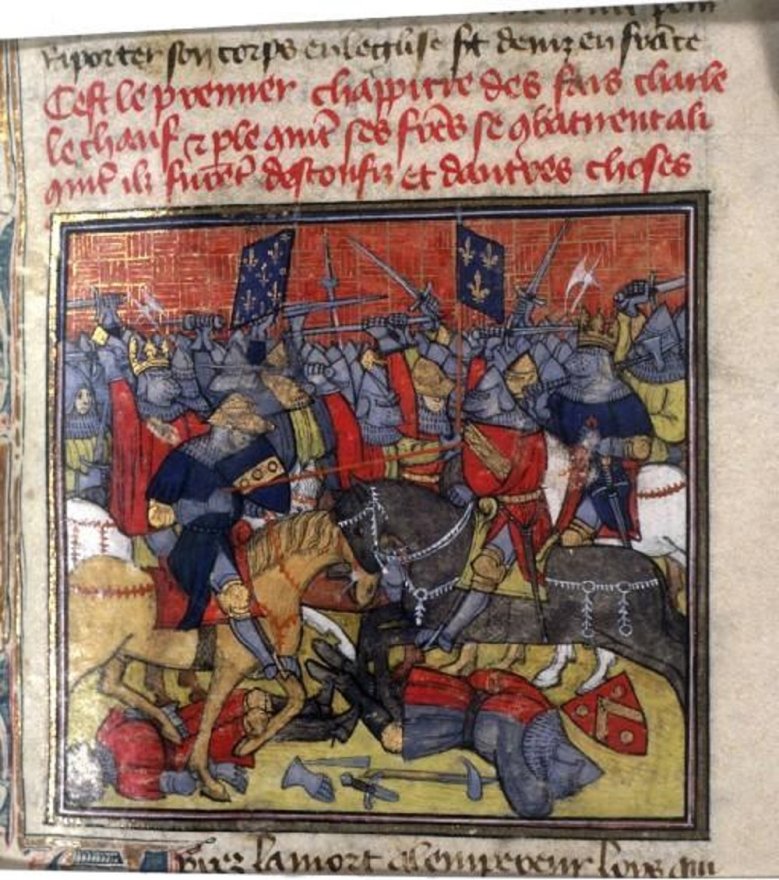 riporter son corps en leglise st deniz en frāce
Cest le premier chappitre des fais charle
le chauf ⁊ ple qmt ses frēs se ꝯbatirent a li
qmt ilz furēt desconfiz et dautres choses
Aprez la mort lempereur loys qui